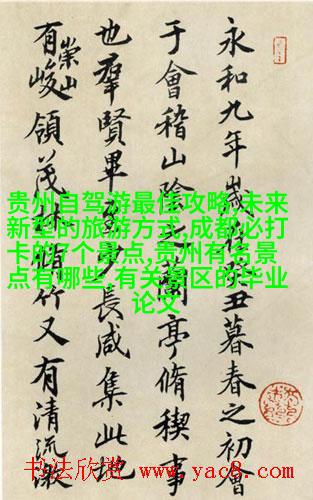 永和九年歲在癸丑暮春之初會
于會稽山陰之蘭亭脩稧事
也羣賢畢至少長咸集此地
有崇山峻領茂林脩竹又有清流激
贵州自驾游最佳攻略,未来
新型的旅游方式,成都必打
卡的7个景点,贵州有名景
点有哪些,有关景区的毕业
论文
书法欣赏 www.yac8.com